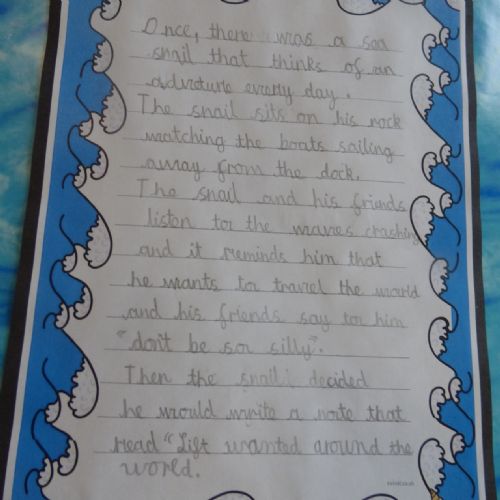 Once, there was a sea
snail that thinks of an
adveture every day.
The snail sits on his rock
watching the boats sailing
away from the dock.
The snail and his friends
listen to the waves crashing
and it reminds him that
he wants to travel the world
and his friends say to him
"don't be so silly".
Then the snail decided
he would write a note that
read "Lift wanted around the
world.